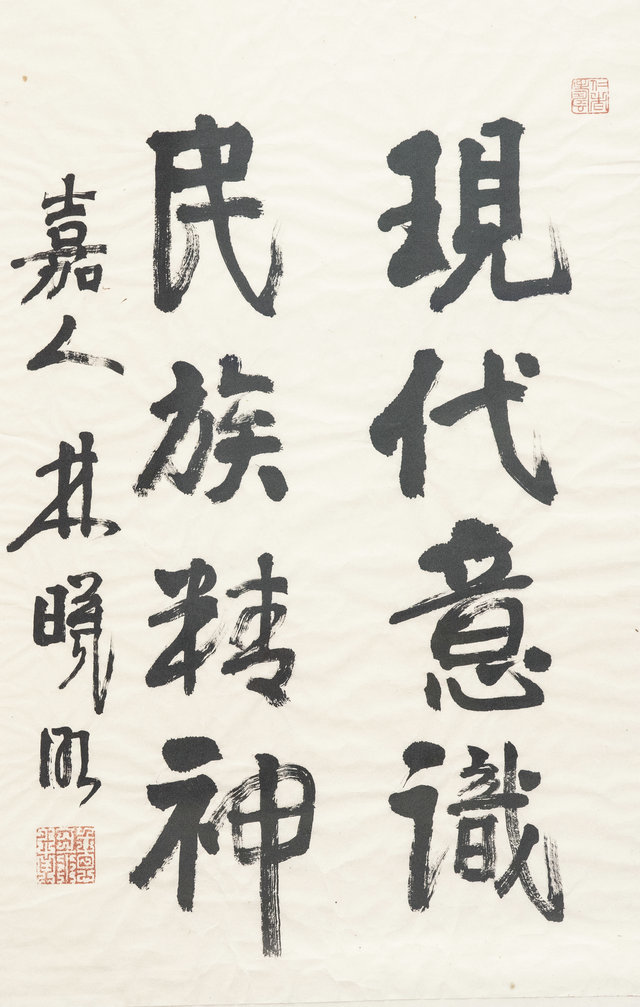 現代意識
民族精神
嘉人林曉